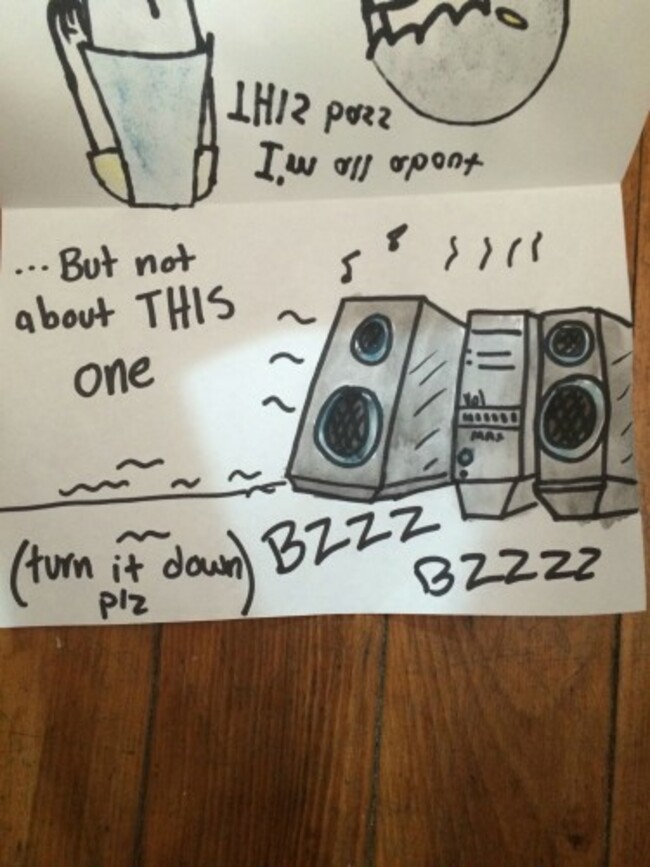 I'm all about
THIS bass
... But not
about THIS
one
Vol
MAX
BZZZ
BZZZZ
(turn it down)
plz